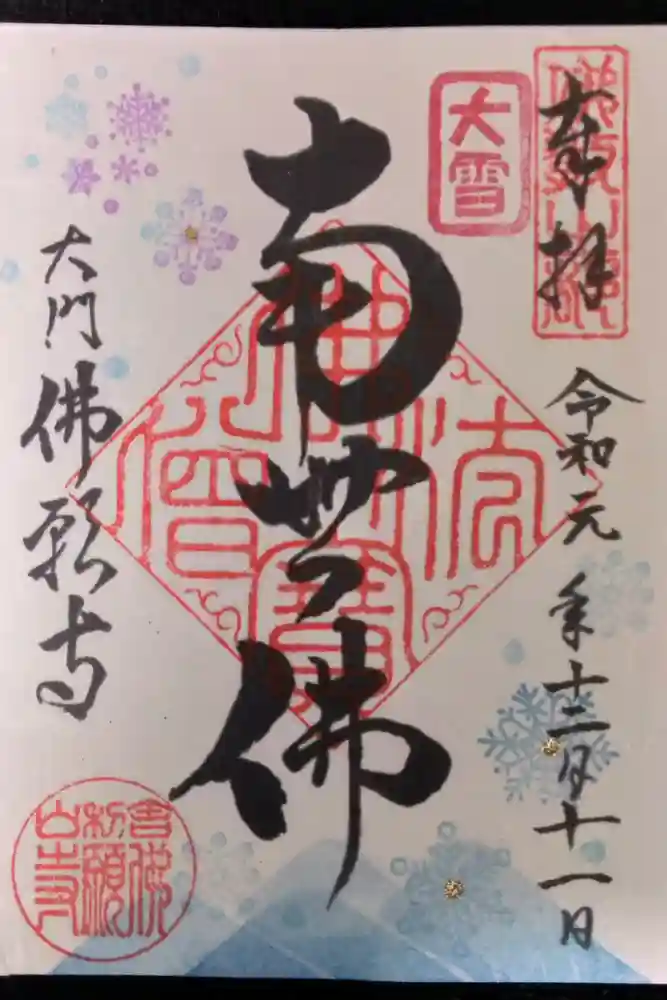 奉拝
令和元年十二月十一日
大雪
南無佛
佛法僧寳
大門佛願寺